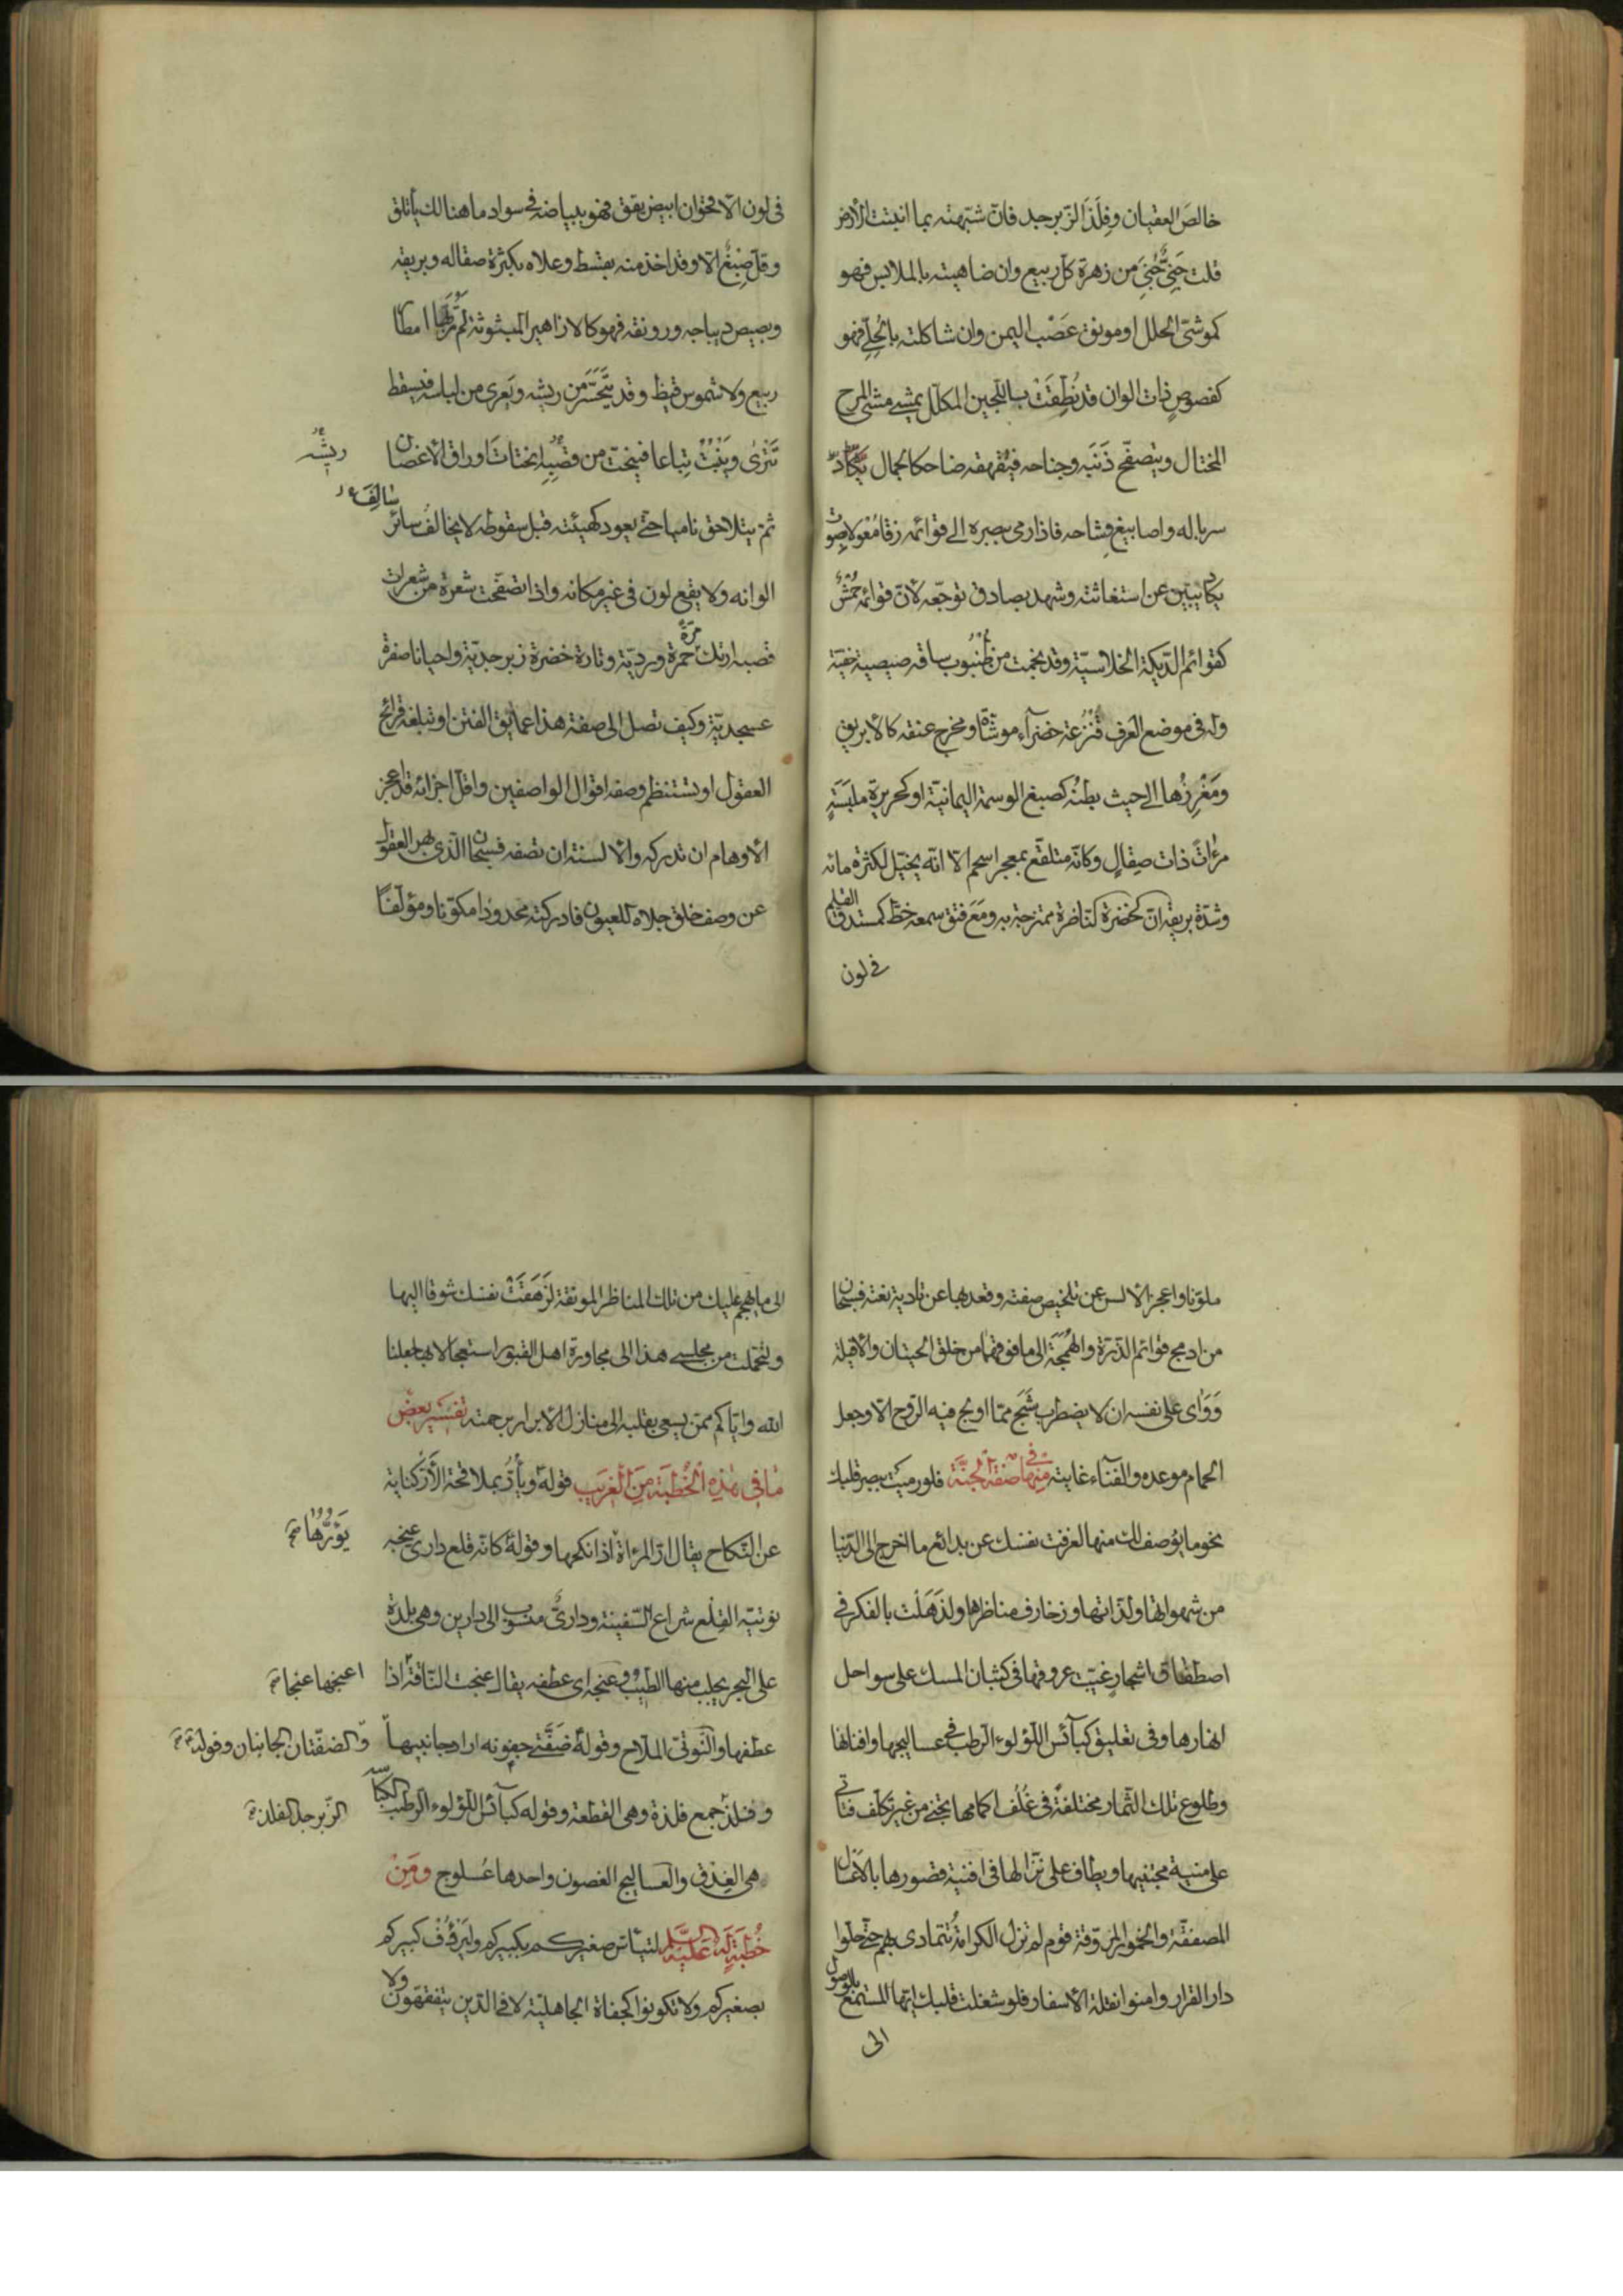 خالصَ العقيان وفِلَذَ الزّبرجد فان شبّهته بما انبتت الارض
قلت جَنِيٌّ جُنِيَ من زهرة كل ربيع وان ضاهيته بالملابس فهو
كموشىّ الحلل او مونق عَصْب اليمن وان شاكلته بالحُلِيّ فهو
كفصوصٍ ذات الوان قد نُطِّقَتْ باللّجين المكلّل يمشى مشى المرح
المختال ويتصفّح ذَنَبَه وجناحه فيُقهقه ضاحكا لجمال
سرباله واصابيغ وِشاحه فاذا رمى ببصره الى قوائمه زقا مُعْوِلا بصوت
يكاد يبين عن استغاثته ويشهد بصادق توجّعه لأنّ قوائمه حُمْشٌ
كقوائم الدّيكة الخلاسيّة وقد نجمت من ظُنْبُوب ساقه صيصية خفيّة
وله فى موضع العرف قُنْزُعة خضراء موشّاة ومخرج عنقه كالأبريق
ومَغْرِزُها الى حيث بطنُه كصبغ الوسمة اليمانيّة او كحريرة ملبَسَةٍ
مرْاتً ذات صِقالٍ وكانّه متلفّع بمعجر اسحم الّا انّه يخيّل لكثرة مائه
وشدّة بريقه انّ الخضرة النّاضرة ممتزجة به ومَعَ فتق سمعه خطّ كمستدقّ القلم
فى لون
فى لون الأقحوان ابيض يقق فهو ببياضه فى سواد ما هنالك يأتلق
وقلّ صِبْغٌ الّا وقد اخذ منه بقسط وعلاه بكثرة صقاله وبريقه
وبصيص ديباجه ورونقه فهو كالازاهير المبثوثة لم تُرَبِّها امطار
ربيع ولا شموس قيظ وقد يَتَحَسَّرُ من ريشه ويَعرى من لباسه فيسقط
تَتْرى وينْبُتُ تِباعا فينحتّ من قصَبِه انحتاتَ اوراق الأغصان
ريشه
ثمّ يتلاحق ناميا حتّى يعود كهيئته قبل سقوطه لا يخالفُ سائر
سَالِفَ
الوانه ولا يقع لون فى غير مكانه واذا تصفّحت شعرة من شعرات
قصبه ارتك حُمرة ورديّة وتارة خضرة زبرجديّة واحيانا صفرة
مرّة
عسجديّة وكيف تصل الى صفة هذا عمايق الفتن او تبلغه قرائح
العقول او تستنظم وصفه اقوال الواصفين واقلّ اجزائه قد اعجز
الأوهام ان تدركه والألسنة ان تصفه فسبحان الّذى بهر العقول
عن وصف خلق جلاه للعيون فادركته محدودا مكوّنا ومؤلّفًا
ملوّنا واعجز الالسن عن تلخيص صفته وقعد بها عن تادية نعته فسبحان
من ادمج قوائم الذرّة والهَمَجَة الى ما فوقهما من خلق الحيتان والأفيلة
وَوَأى على نفسه ان لا يضطرب شَبَح ممّا اولج فيه الرّوح الّا وجعل
الحمام موعده والفناء غايته منها فى صفة الجنّة فلو رميت ببصر قلبك
نحو ما يُوصف لك منها لعزفت نفسك عن بدائع ما اخرج الى الدّنيا
من شهواتها ولذّاتها وزخارف مناظرها ولذَهَلَت بالفكر فى
اصطفاق اشجارٍ غيّبت عروقها فى كثبان المسك على سواحل
انهارها وفى تعليق كبآئس اللّؤلوء الرّطب فى عساليجها وافنانها
وطلوع تلك الثّمار مختلفةً فى غُلُف اكمامها تجنى من غير تكلّف فتأتى
على منية مجتنيها ويطاف على نزّالها فى افنية قصورها بالأعسال
المصفّقة والخمور المروّقة قوم لم تزل الكرامة تتمادى بهم حتّى حلّوا
دار القرار وامنوا نقلة الأسفار فلو شغلت قلبك ايّها المستمع بالوصول
الى
الى ما يهجم عليك من تلك المناظر المونقة لزَهَقَتْ نفسك شوقا اليها
ولتحمّلت من مجلسى هذا الى مجاورة اهل القبور استعجالا بها جعلنا
الله وايّاكم ممّن يسعى بقلبه الى منازل الأبرار برحمته تفسير بعض
ما فى هذه الخطبة من الغريب قوله ويأرُّ بملاقحة الأرّ كناية
عن النّكاح يقال ارّ المرأة اذا نكحها وقوله كانّه قلع دارىّ عنجه
يَؤُرُّها
نوتيّه القِلع شراع السّفينة ودارىّ منسوب الى دارين وهى بلدة
على البحر يجلب منها الطّيب وعنجه اى عطفه يقال عنجت النّاقة اذا
اعنجها عنجا
عطفتها والنّوتىّ الملّاح وقوله ضَفَّتى جفونه اراد جانبيها
والضفّتان الجانبان وقوله
وفلذ جمع فلذة وهى القطعة وقوله كبآئس اللّؤلوء الرّطب الكباسة
الزّبرجد الفلذ
هى العِذق والعساليج الغصون واحدها عُسلوج ومِنْ
خُطْبَةٍ لَهُ عَلَيْهِ السَّلَم ليتأسّ صغيركم بكبيركم وليرؤف كبيركم
بصغيركم ولا تكونوا كجفاة الجاهليّة لا فى الدّين يتفقهّون ولا